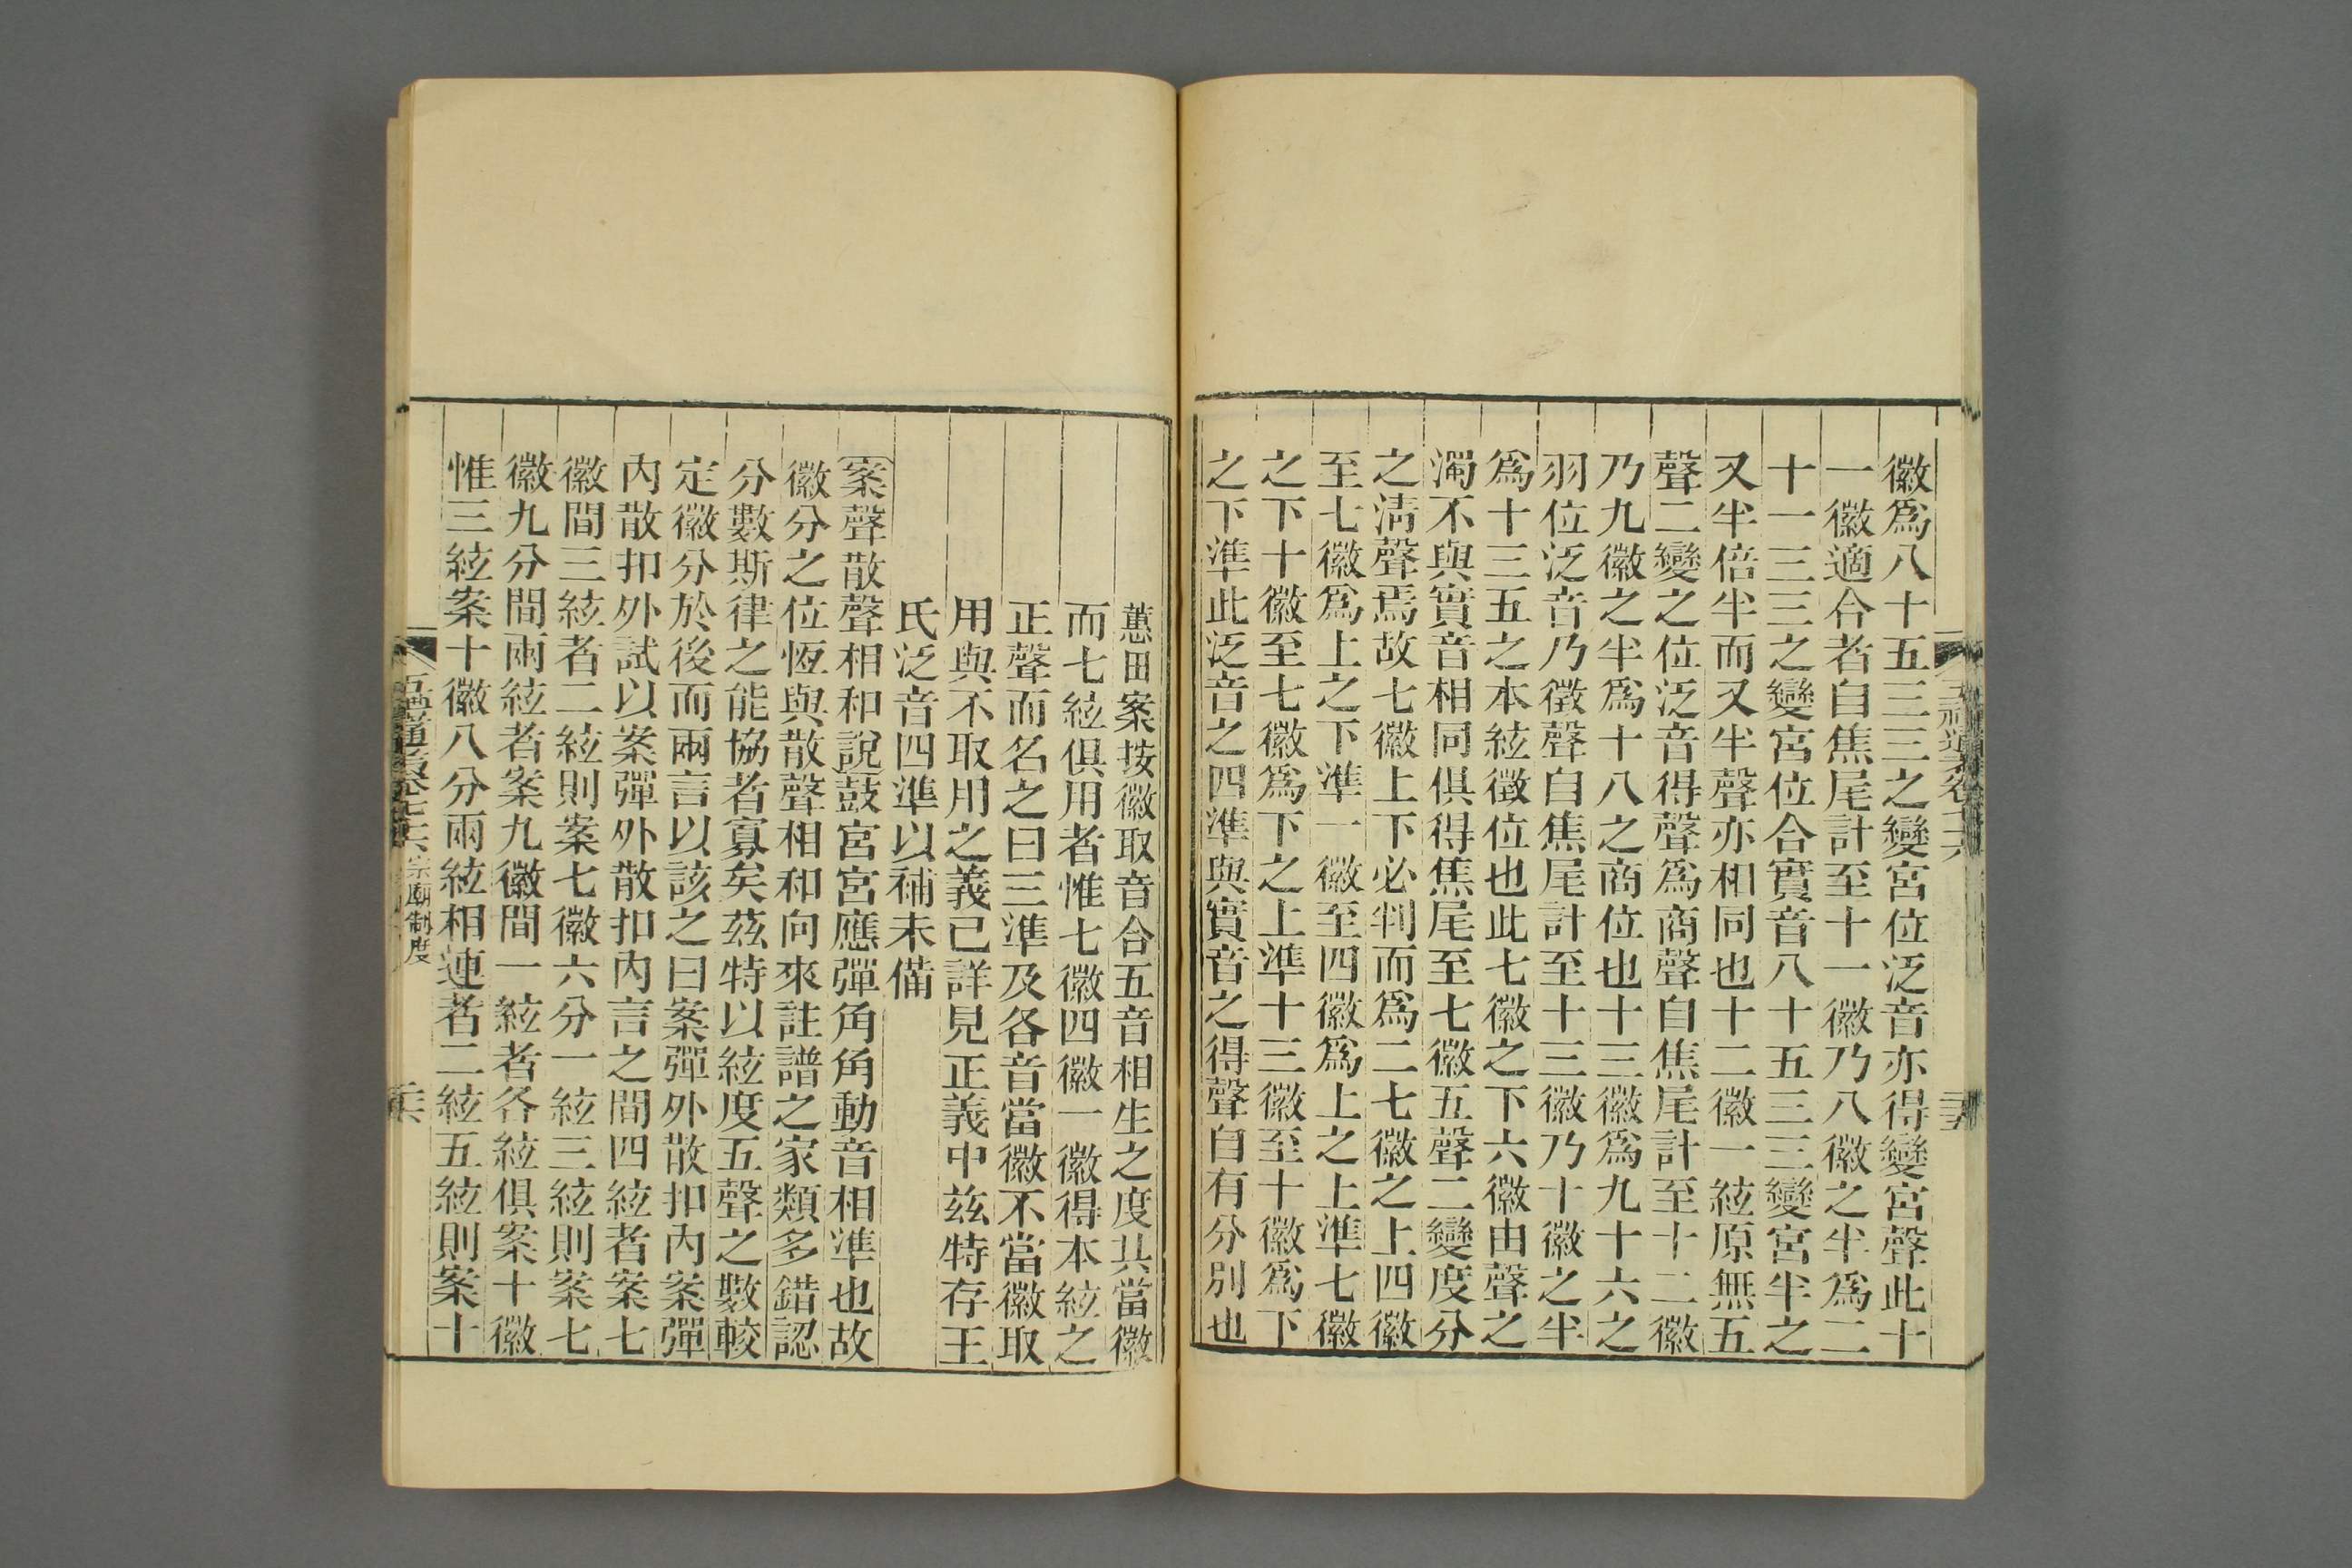 徽爲八十五三三之變宮位泛音亦得變宮聲此十
一徽適合者自焦尾計至十一徽乃八徽之半爲二
十一三三之變宮位合實音八十五三三變宮半之
又半倍半而又半聲亦相同也十二徽一絃原無五
聲二變之位泛音得聲爲商聲自焦尾計至十二徽
乃九徽之半爲十八之商位也十三徽爲九十六之
羽位泛音乃徵聲自焦尾計至十三徽乃十徽之半
爲十三五之本絃徵位也此七徽之下六徽由聲之
濁不與實音相同俱得焦尾至七徽五聲二變度分
之清聲焉故七徽上下必判而爲二七徽之上四徽
至七徽爲上之下準一徽至四徽爲上之上準七徽
之下十徽至七徽爲下之上準十三徽至十徽爲下
之下準此泛音之四準與實音之得聲自有分別也
蕙田案按徽取音合五音相生之度其當徽
而七絃俱用者惟七徽四徽一徽得本絃之
正聲而名之曰三準及各音當徽不當徽取
用與不取用之義已詳見正義中茲特存王
氏泛音四準以補未備
案聲散聲相和說鼓宮宮應彈角角動音相準也故
徽分之位恆與散聲相和向來註譜之家類多錯認
分數斯律之能協者寡矣茲特以絃度五聲之數較
定徽分於後而兩言以該之曰案彈外散扣內案彈
內散扣外試以案彈外散扣內言之間四絃者案七
徽間三絃者二絃則案七徽六分一絃三絃則案七
徽九分間兩絃者案九徽間一絃者各絃俱案十徽
惟三絃案十徽八分兩絃相連者二絃五絃則案十
宗廟制度